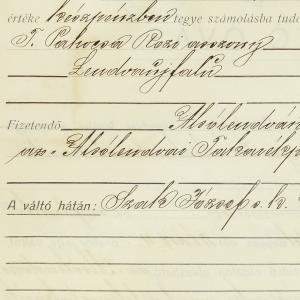 értéke készpénzben tegye számolásba tudo
T. Pahocsa Rozi asszony
Lendvaujfalu
Fizetendő Alsólendván
az Alsólendvai Takarékp
A váltó hátán: Szak József s. k.